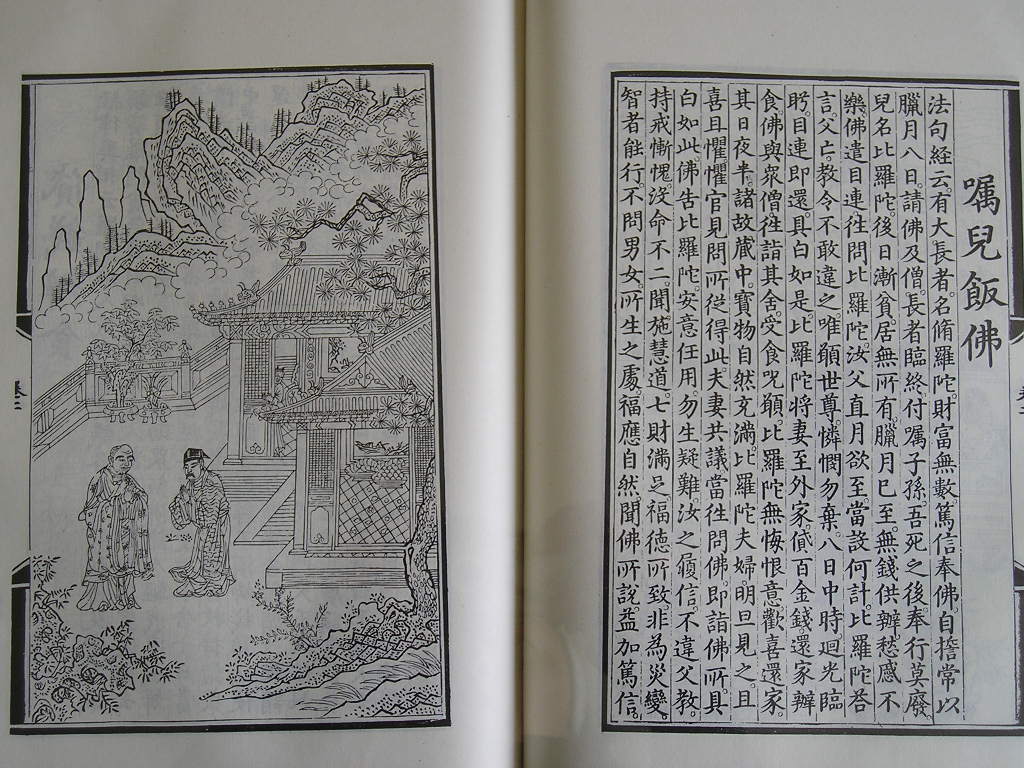 嘱兒飯佛
法句経云有大長者。名脩羅陀。財富無數。篤信奉佛。自擔常以
臘月八日。請佛及僧。長者臨終。付嘱子孫。吾死之後。奉行莫廢。
兒名比羅陀。後日漸貧。居無所有。臘月已至。無錢供辦。愁感不
樂。佛遣目連。往問比羅陀。汝父直月欲至。當設何計。比羅陀荅
言。父亡教令。不敢違之。唯願世尊。憐憫勿棄。八日中時。廻光臨
眄。目連即還。具白如是。比羅陀將妻至外家。貸百金錢。還家辦
食。佛與衆僧。往詣其舍。受食呪願。比羅陀無悔恨意。歡喜還家。
其日夜半。諸故蔵中。寶物自然充滿。比羅陀夫婦。明旦見之。且
喜且懼。懼官見問所従得此。夫妻共議。當往問佛。即詣佛所。具
白如此。佛告比羅陀。安意任用。勿生疑難。汝之履信。不違父教。
持戒慚愧。没命不二。聞施慧道。七財滿足。福徳所致。非為災變。
智者能行。不問男女。所生之處。福應自然。聞佛所説。益加篤信。
卷二